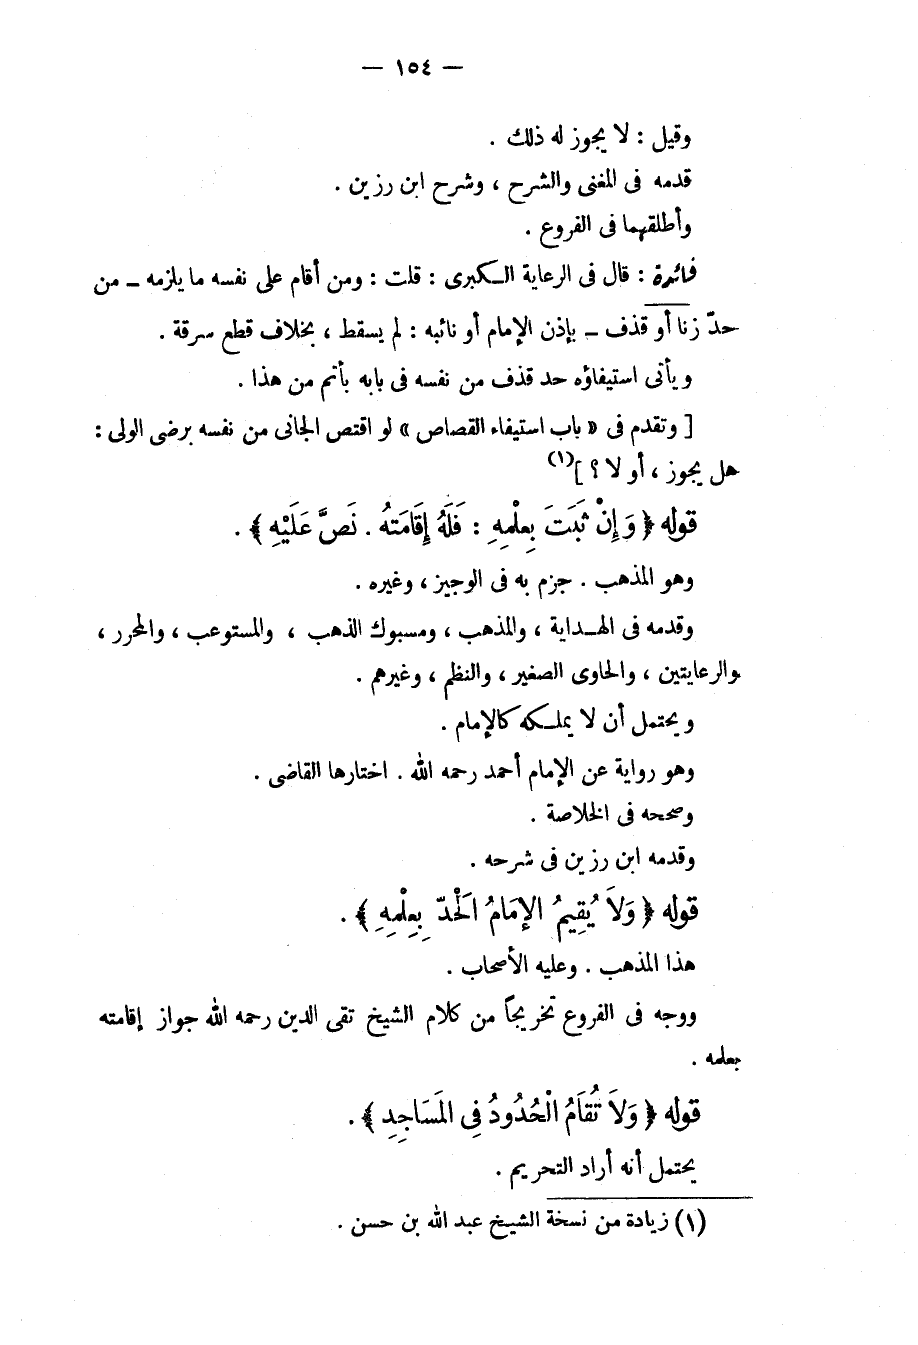 — ١٥٤ —
وقيل : لا يجوز له ذلك .
قدمه فى المغنى والشرح ، وشرح ابن رزين .
وأطلقهما فى الفروع .
فائدة : قال فى الرعاية الكبرى : قلت : ومن أقام على نفسه ما يلزمه ــ من
حدّ زنا أو قذف ــ بإذن الإمام أو نائبه : لم يسقط ، بخلاف قطع سرقة .
ويأتى استيفاؤه حد قذف من نفسه فى بابه بأتم من هذا .
[ وتقدم فى « باب استيفاء القصاص » لو اقتص الجانى من نفسه برضى الولى :
هل يجوز ، أو لا ؟ ](١)
قوله ﴿ وَإِنْ ثَبَتَ بِعِلْمِهِ : فَلَهُ إِقَامَتُهُ . نَصَّ عَلَيْهِ ﴾ .
وهو المذهب . جزم به فى الوجيز ، وغيره .
وقدمه فى الهــداية ، والمذهب ، ومسبوك الذهب ، والمستوعب ، والمحرر ،
والرعايتين ، والحاوى الصغير ، والنظم ، وغيرهم .
ويحتمل أن لا يملــكه كالإمام .
وهو رواية عن الإمام أحمد رحمه الله . اختارها القاضى .
وصححه فى الخلاصة .
وقدمه ابن رزين فى شرحه .
قوله ﴿ وَلاَ يُقِيمُ الإمَامُ الْحَدّ بِعِلْمِهِ ﴾ .
هذا المذهب . وعليه الأصحاب .
ووجه فى الفروع تخريجاً من كلام الشيخ تقى الدين رحمه الله جواز إقامته
بعلمه .
قوله ﴿ وَلاَ تُقَامُ الْحُدُودُ فِى المَسَاجِدِ ﴾ .
يحتمل أنه أراد التحريم .
(١) زيادة من نسخة الشيخ عبد الله بن حسن .